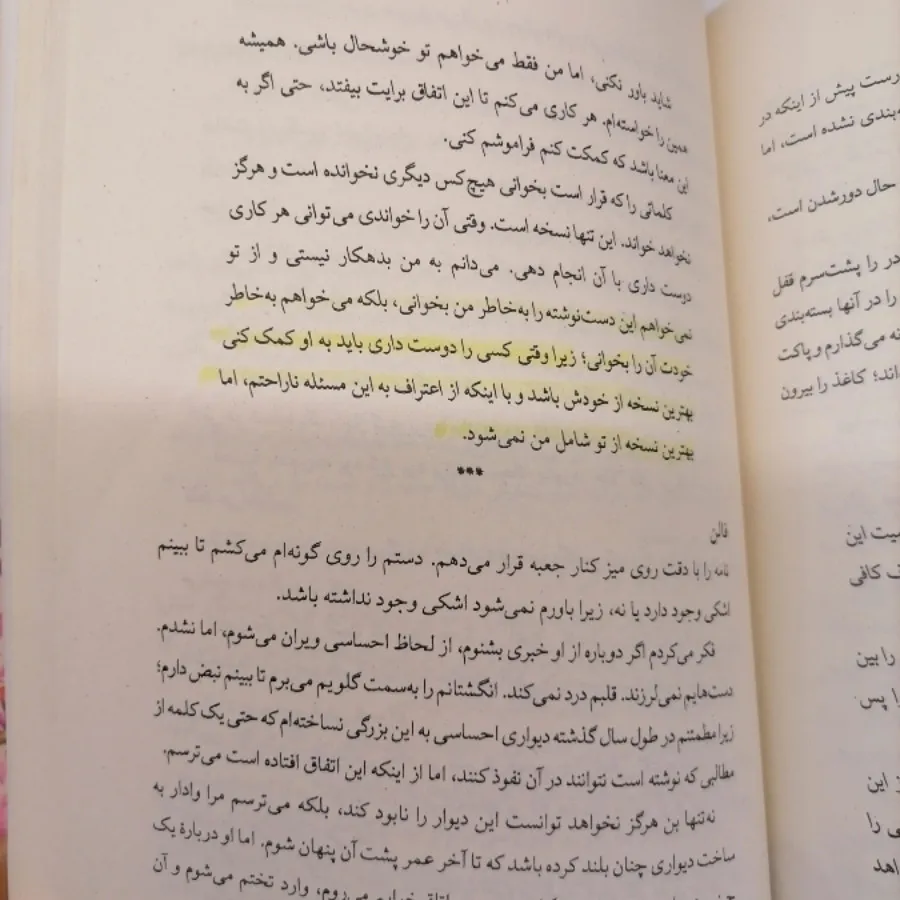 شاید باور نکنی، اما من فقط می‌خواهم تو خوشحال باشی. همیشه
همین را خواسته‌ام. هر کاری می‌کنم تا این اتفاق برایت بیفتد، حتی اگر به
این معنا باشد که کمکت کنم فراموشم کنی.
کلماتی را که قرار است بخوانی هیچ‌کس دیگری نخوانده است و هرگز
نخواهد خواند. این تنها نسخه است. وقتی آن را خواندی می‌توانی هر کاری
دوست داری با آن انجام دهی. می‌دانم به من بدهکار نیستی و از تو
نمی‌خواهم این دست‌نوشته را به‌خاطر من بخوانی، بلکه می‌خواهم به‌خاطر
خودت آن را بخوانی؛ زیرا وقتی کسی را دوست داری باید به او کمک کنی
بهترین نسخه از خودش باشد و با اینکه از اعتراف به این مسئله ناراحتم، اما
بهترین نسخه از تو شامل من نمی‌شود.
***
فالن
نامه را با دقت روی میز کنار جعبه قرار می‌دهم. دستم را روی گونه‌ام می‌کشم تا ببینم
اشکی وجود دارد یا نه، زیرا باورم نمی‌شود اشکی وجود نداشته باشد.
فکر می‌کردم اگر دوباره از او خبری بشنوم، از لحاظ احساسی ویران می‌شوم، اما نشدم.
دست‌هایم نمی‌لرزند. قلبم درد نمی‌کند. انگشتانم را به‌سمت گلویم می‌برم تا ببینم نبض دارم؛
زیرا مطمئنم در طول سال گذشته دیواری احساسی به این بزرگی نساخته‌ام که حتی یک کلمه از
مطالبی که نوشته است نتوانند در آن نفوذ کنند، اما از اینکه این اتفاق افتاده است می‌ترسم.
نه‌تنها بن هرگز نخواهد توانست این دیوار را نابود کند، بلکه می‌ترسم مرا وادار به
ساخت دیواری چنان بلند کرده باشد که تا آخر عمر پشت آن پنهان شوم. اما او دربارهٔ یک
می‌روم، وارد تختم می‌شوم و آن
رست پیش از اینکه در
بندی نشده است، اما
حال دورشدن است،
در را پشت‌سرم قفل
را در آنها بسته‌بندی
می‌گذارم و پاکت
کاغذ را بیرون
این
کافی
را بین
پس
این
را